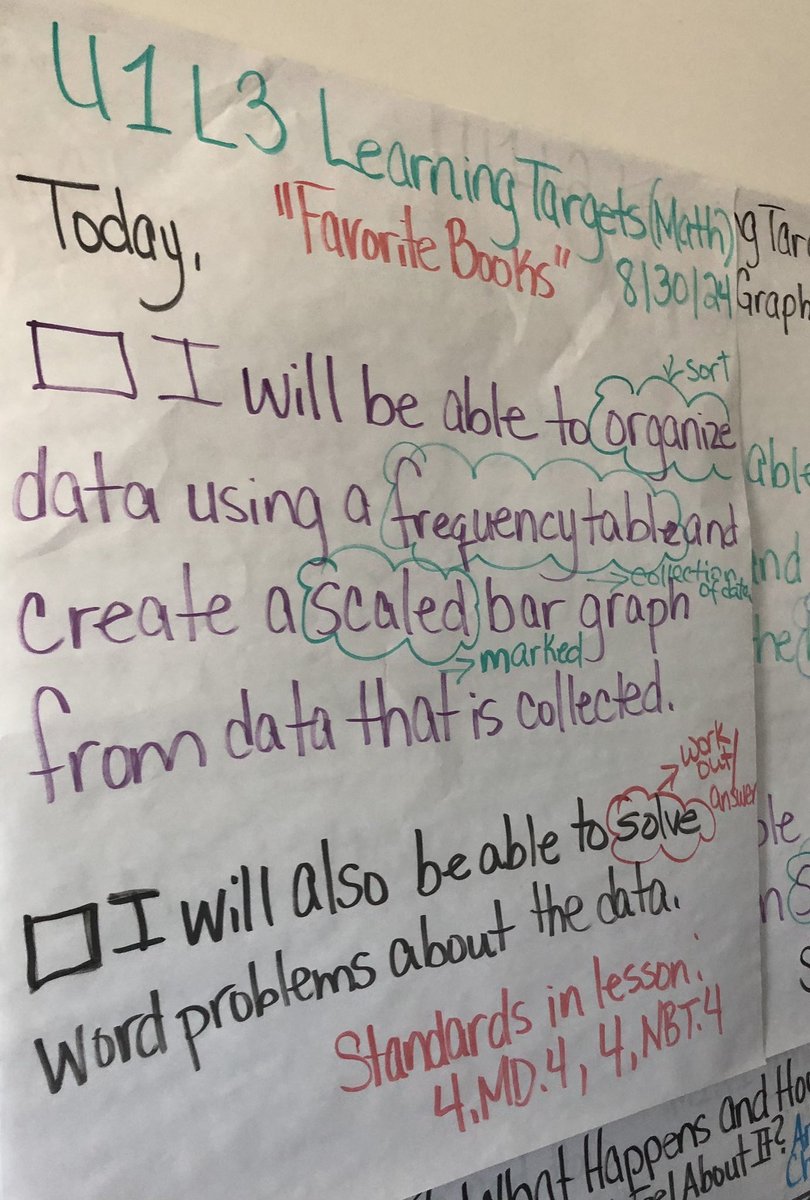 U1L3 Learning Targets (Math)
Today, "Favorite Books" 8/30/24
I will be able to organize
sort
data using a frequency table and
collection of data
create a scaled bar graph
marked
from data that is collected.
work out/ answer
I will also be able to solve
word problems about the data.
Standards in lesson:
4.MD.4, 4.NBT.4
Graph
able
What Happens and
About It?